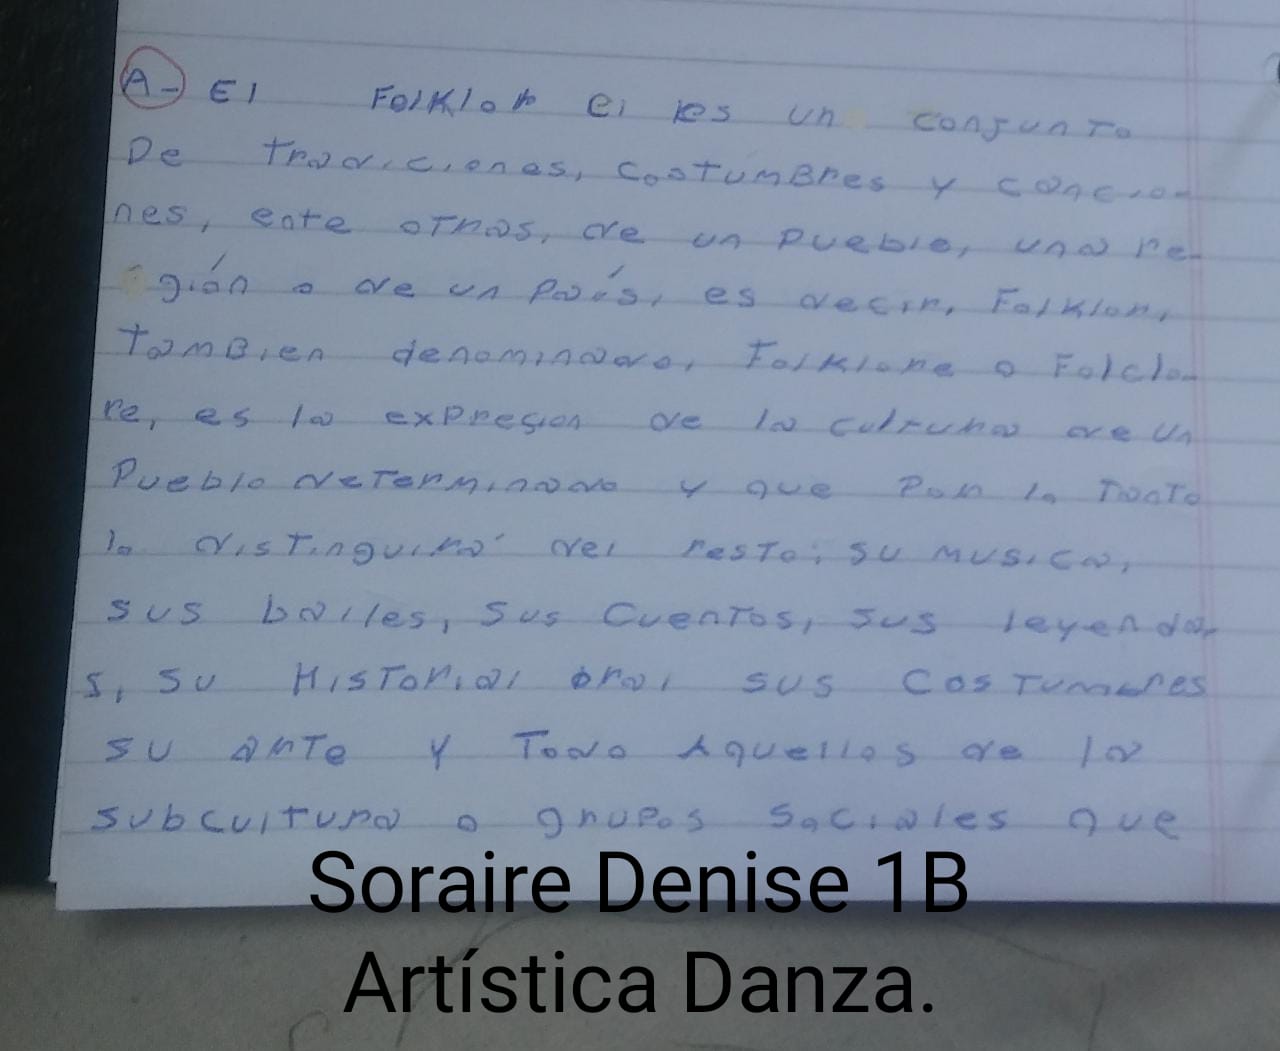 A- El Folklor el es un conjunto
De tradiciones, costumBres y cancio-
nes, ente otras, de un pueblo, una re-
gión o de un país, es decir, Folklor,
tamBien denominado, Folklore o Folclo-
re, es la expresion de la cultura de un
Pueblo determinado y que por lo tanto
lo distinguirá del resto: su musica,
sus bailes, sus Cuentos, sus leyenda-
s, su Historial oral sus Costumbres
su arte y Todo Aquellos de la
subcultura o grupos sociales que
Soraire Denise 1B
Artística Danza.